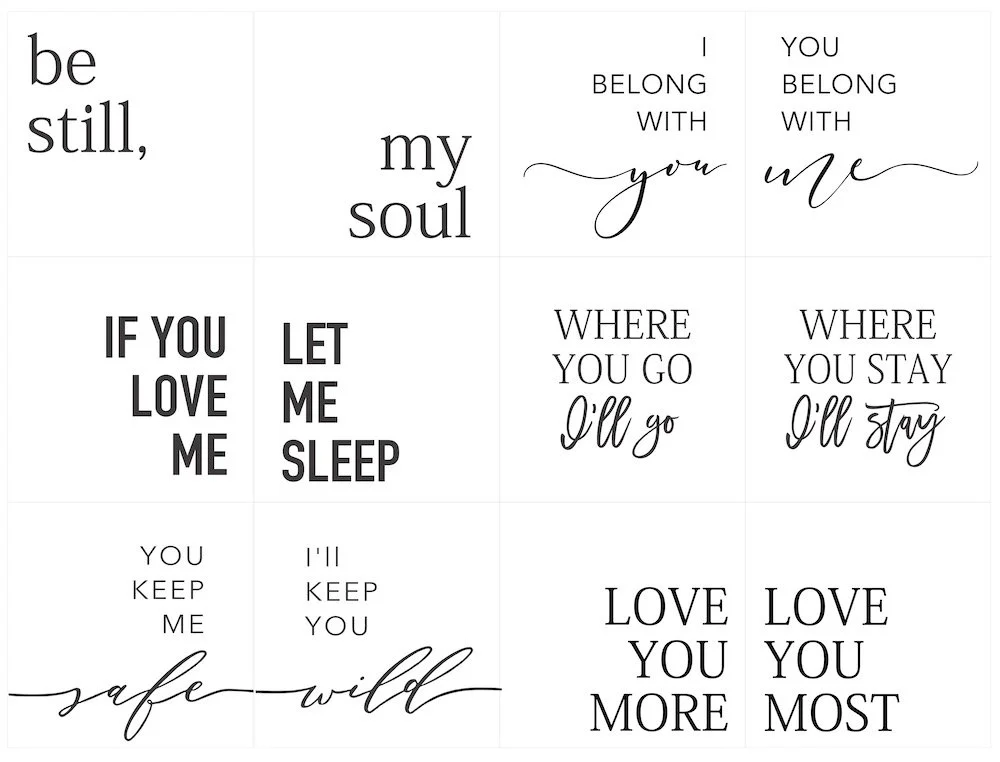 be
still,
my
soul
I
BELONG
WITH
you
YOU
BELONG
WITH
me
IF YOU
LOVE
ME
LET
ME
SLEEP
WHERE
YOU GO
I'll go
WHERE
YOU STAY
I'll stay
YOU
KEEP
ME
safe
I'll
KEEP
YOU
wild
LOVE
YOU
MORE
LOVE
YOU
MOST